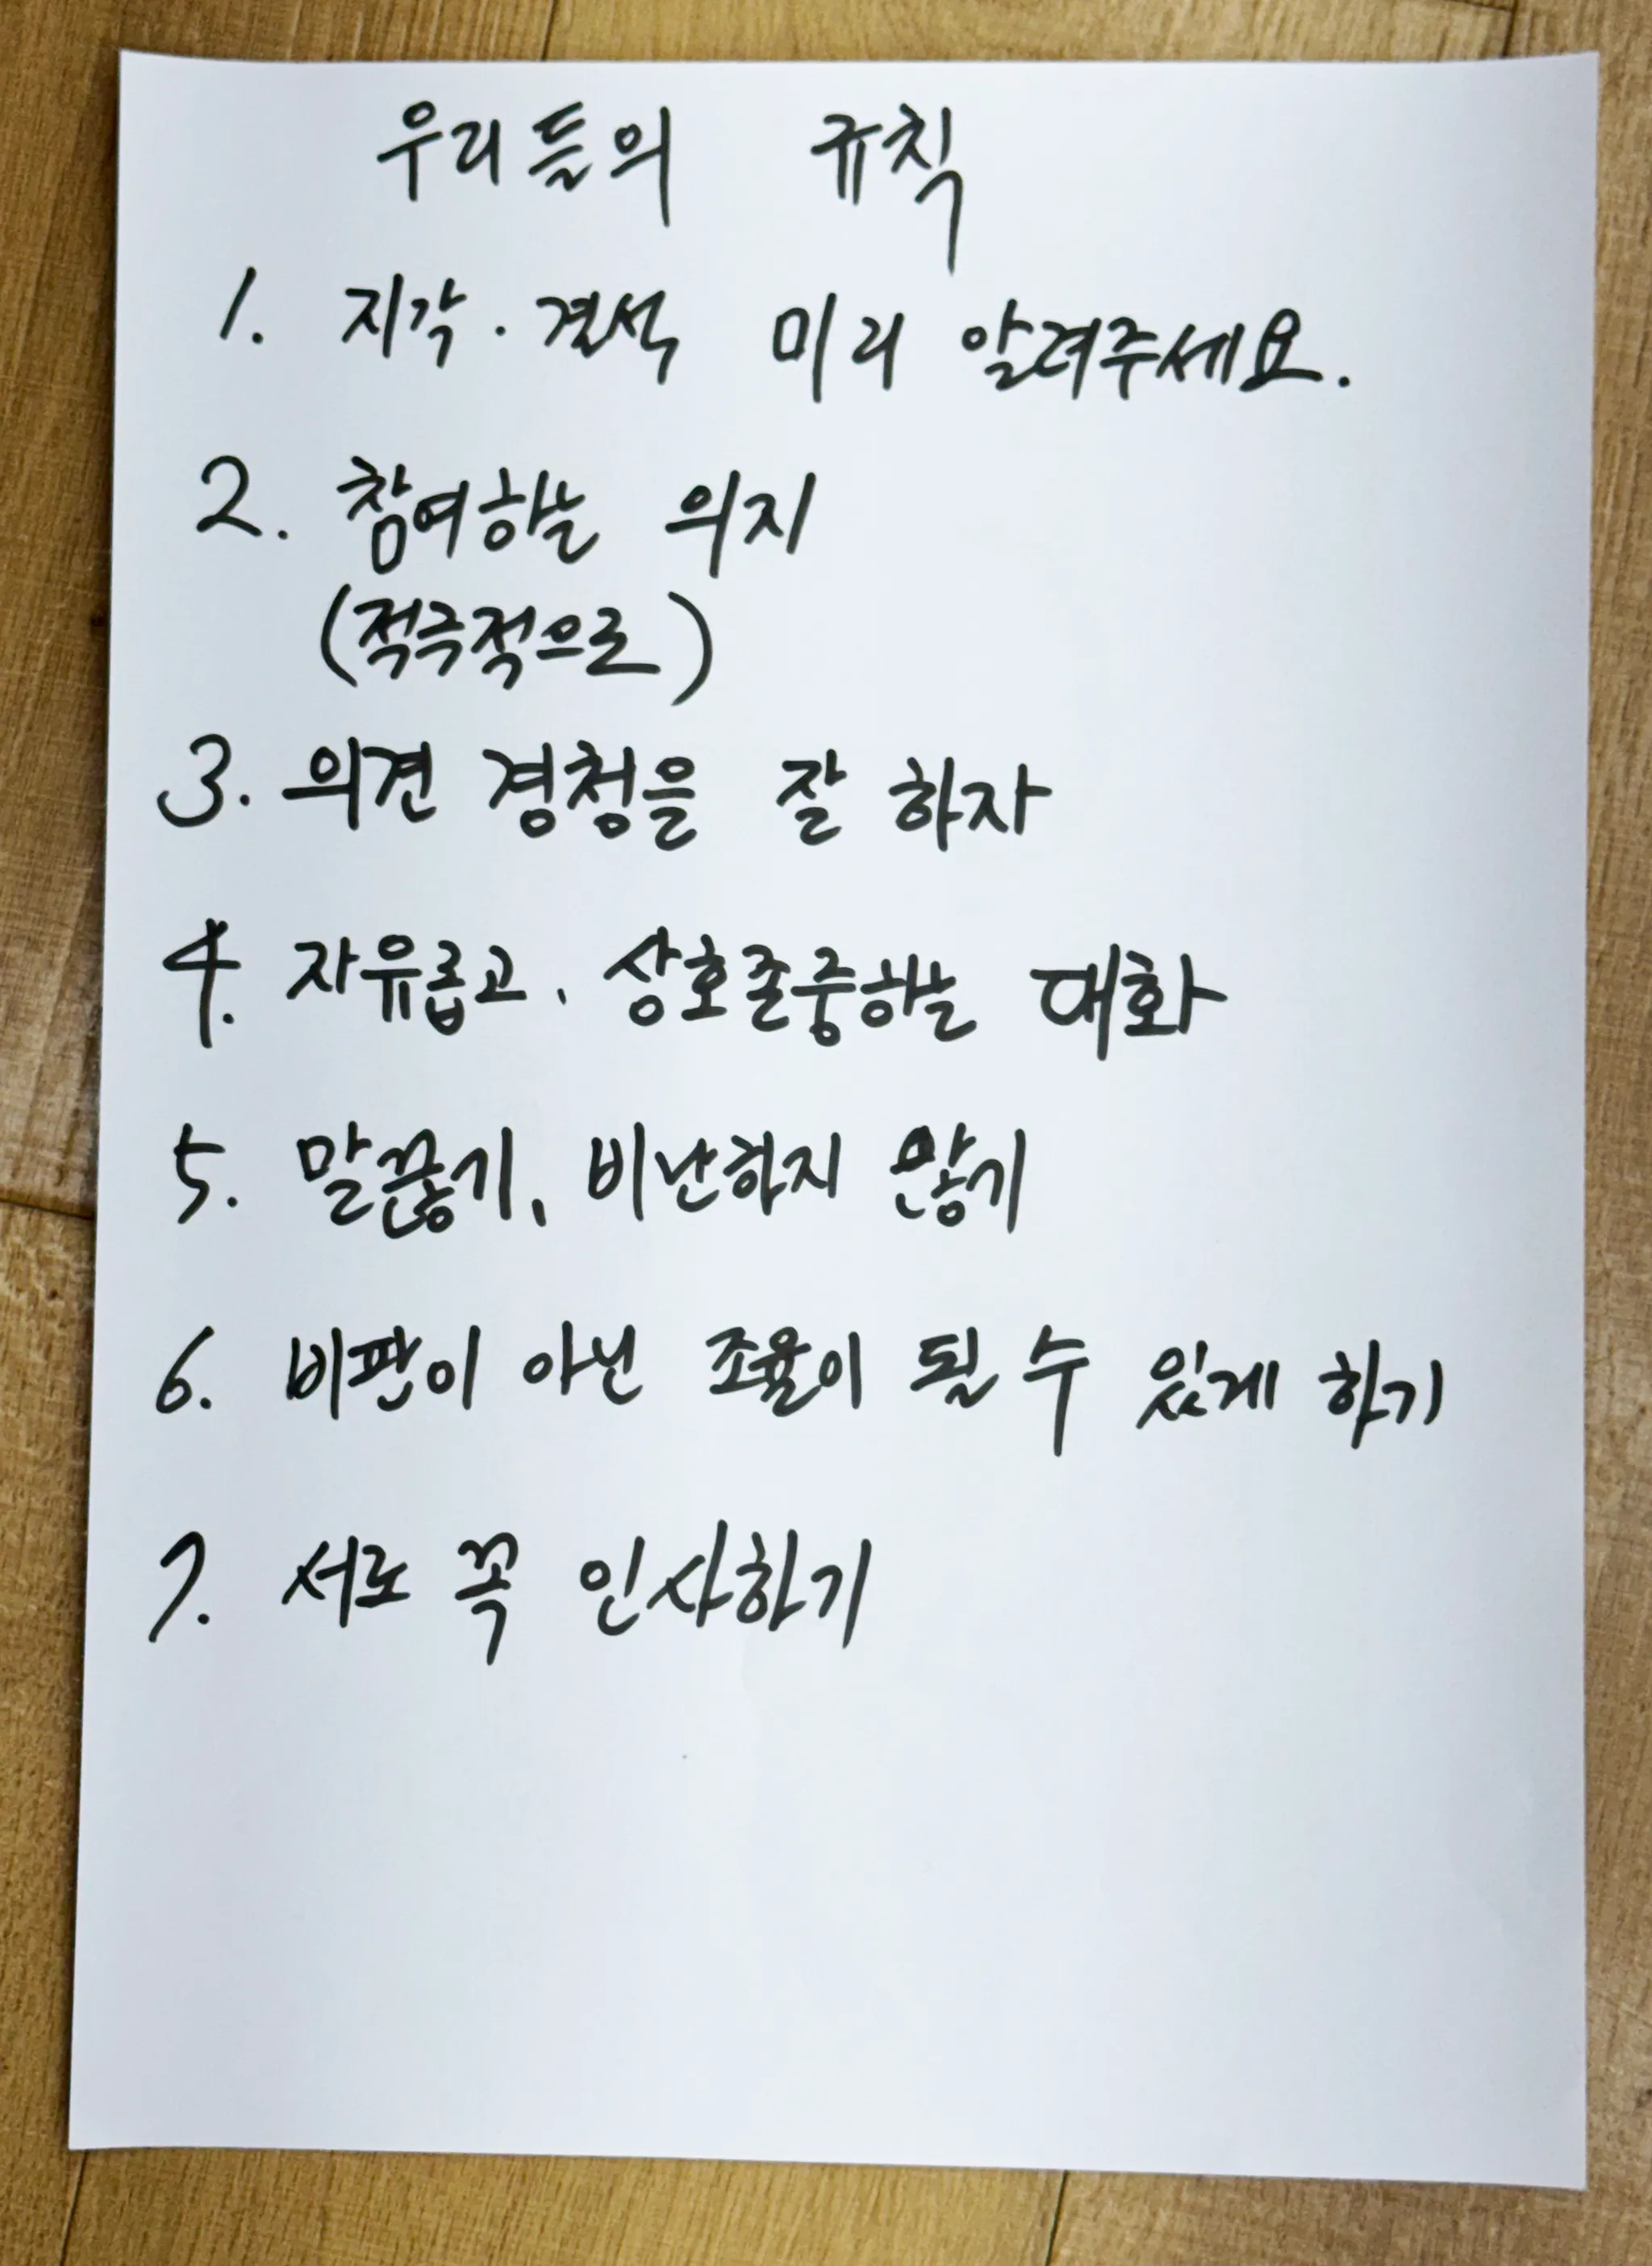 우리들의 규칙
1. 지각·결석 미리 알려주세요.
2. 참여하는 의지
(적극적으로)
3. 의견 경청을 잘 하자
4. 자유롭고, 상호존중하는 대화
5. 말끊기, 비난하지 않기
6. 비판이 아닌 조율이 될 수 있게 하기
7. 서로 꼭 인사하기